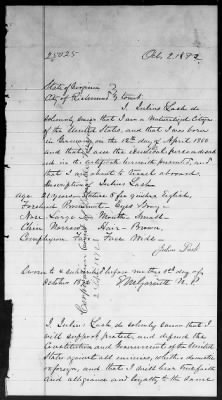 25025 Oct. 2. 1882
State of Virginia
City of Richmond to wit
I, Julius Lash do
solemnly swear that I am a Naturalized Citizen
of the United States, and that I was born
in Germany on the 12th day of April 1860
and that I am the identical person described
in the certificate herewith presented, and
that I am about to travel abroad.
Description of Julius Lash
Age 21 years Stature 5 feet inches English
Forehead Prominent - Eyes Grey -
Nose Large - Mouth Small -
Chin Narrow - Hair - Brown,
Complexion Fair - Face Wide -
Julius Lash
Sworn to & subscribed before me this day of
October 1882
N. P.
I, Julius Lash do solemnly swear that I
will support, protect, and defend the
Constitution and Government of the United
States against all enemies, whether domestic
or foreign, and that I will bear true faith
and allegiance and loyalty to the same